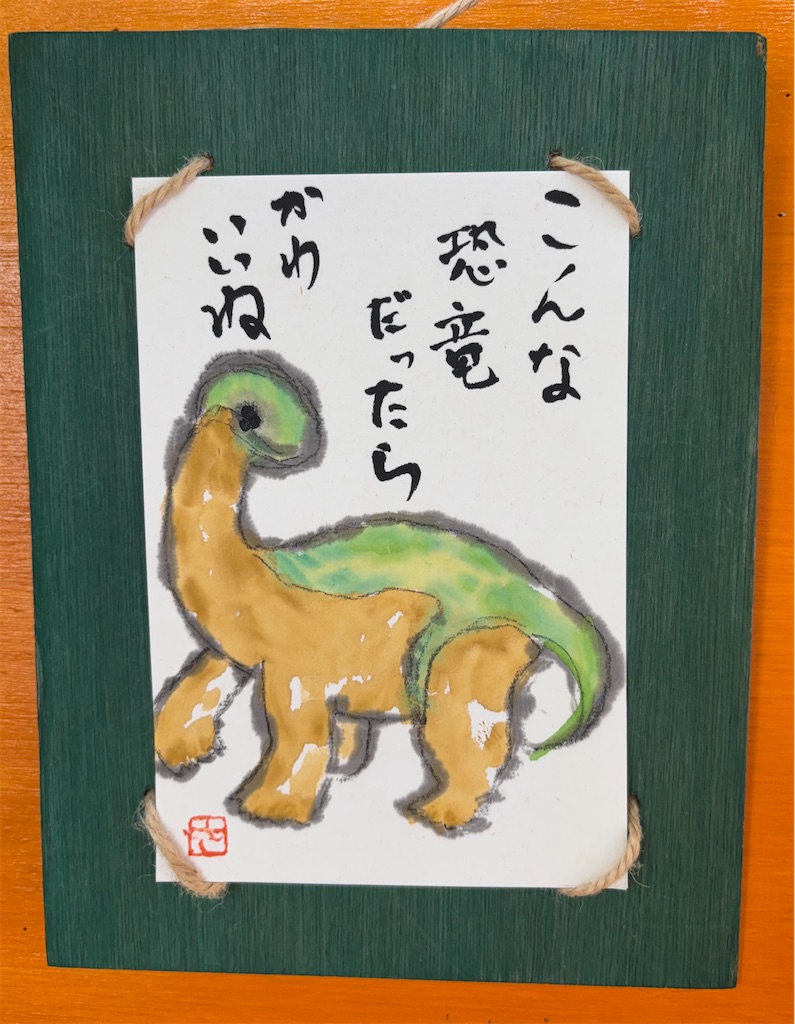 こんな
恐竜
だったら
かわ
いいね